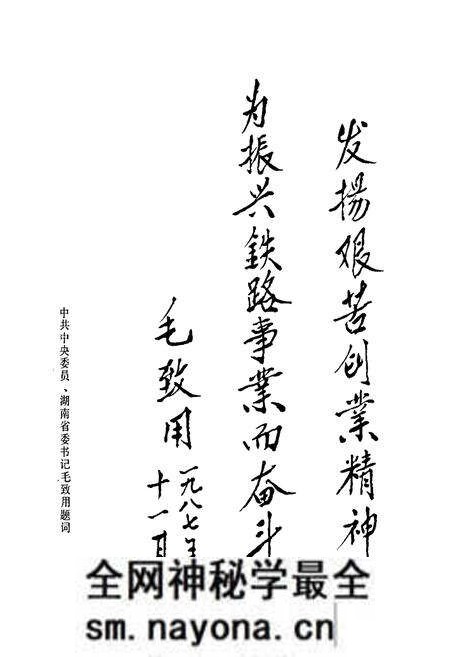 发揚艰苦创業精神
为振兴鉄路事業而奋斗
毛致用
一九八七年
十一月
中共中央委员、湖南省委书记毛致用题词
全网神秘学最全
sm.nayona.cn